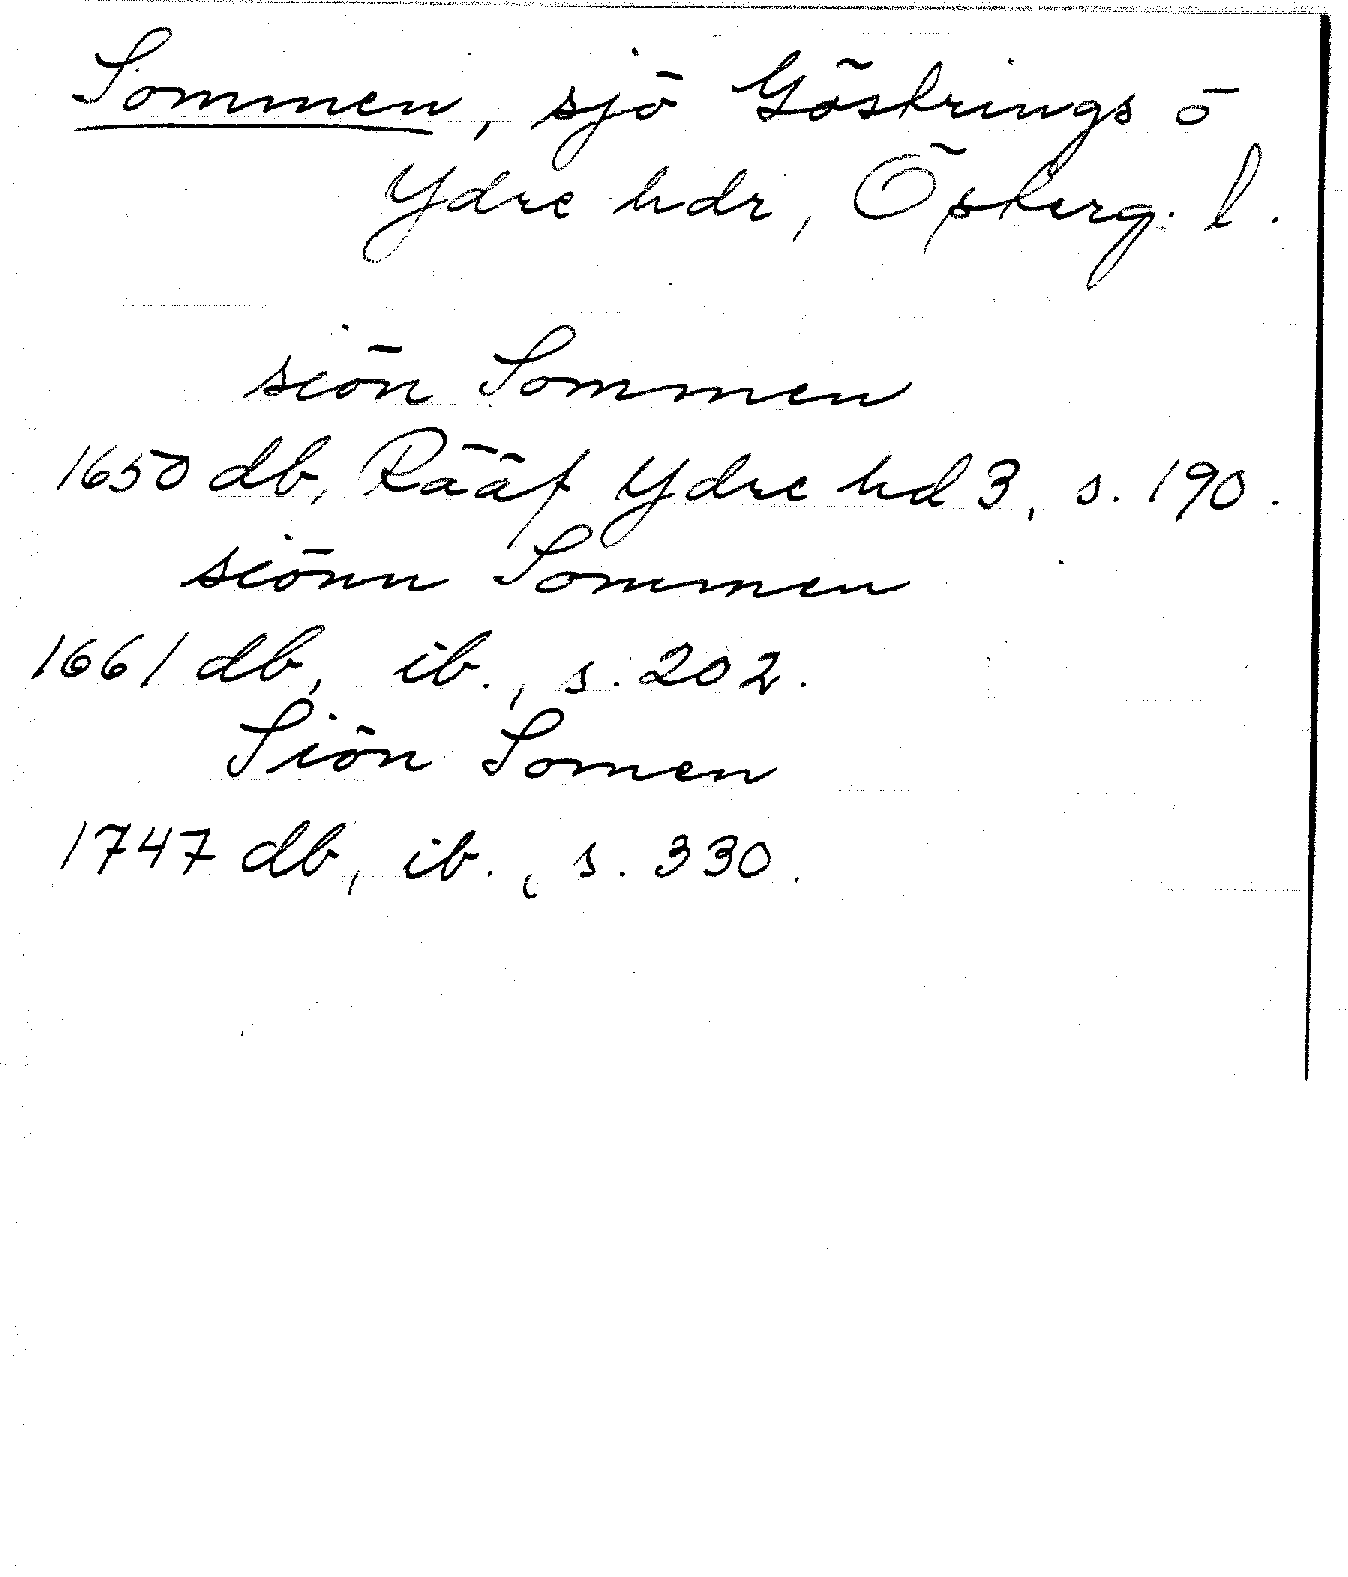 Sommen, sjö Göstrings o
Ydre hdr, Österg. l.
siön Sommen
1650 db, Rääf Ydre hd 3, s. 190.
siönn Sommen
1661 db, ib., s. 202.
Siön Somen
1747 db, ib., s. 330.